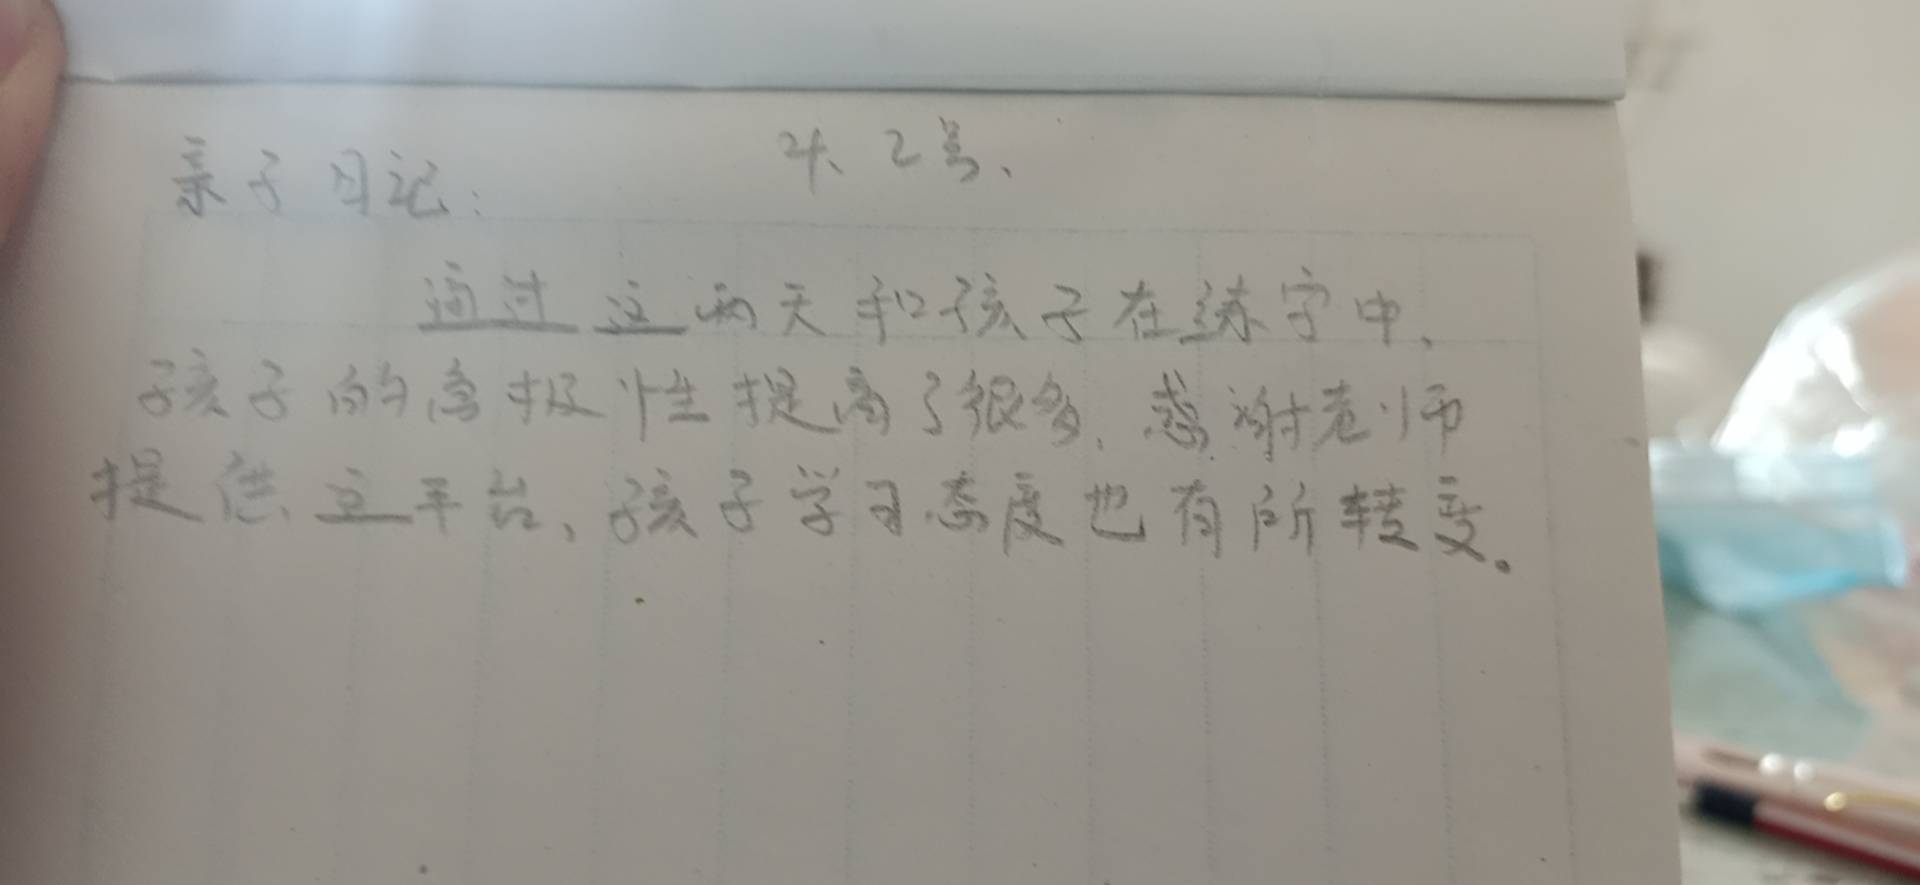 亲子日记: 4、2号、
通过这两天和孩子在练字中、
孩子的积极性提高了很多、感谢老师
提供这平台、孩子学习态度也有所转变。